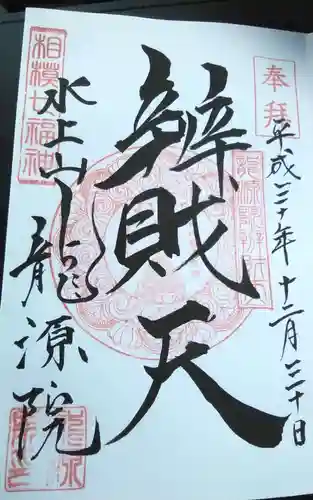 奉拝
平成三十年十二月三十日
辨財天
相模七福神
水上山龍源院